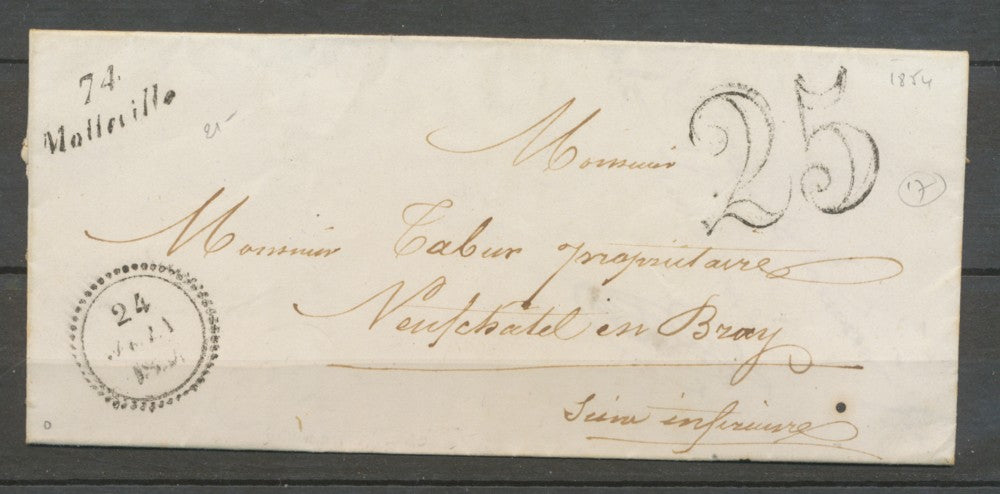 74
Motteville
25
1854
21-
7
Monsieur
Monsieur Tabur propriétaire
Neufchatel en Bray
Seine inférieure
24
0